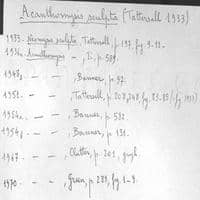 Acanthomysis sculpta (Tattersall 1933)
1933. Neomysis sculpta, Tattersall, p. 197, fig. 9-12.
1936a. Acanthomysis — , Ii, p. 589.
1948 — — , Banner, p. 97.
1951. — — , Tattersall, p. 208, 248, fig.
1954a. — — , Banner, p. 582
1954b. — — , Banner, p. 131.
1967. — — , Clutter, p. 201, graph
1970. — — , Green, p. 289, fig. 1-9.